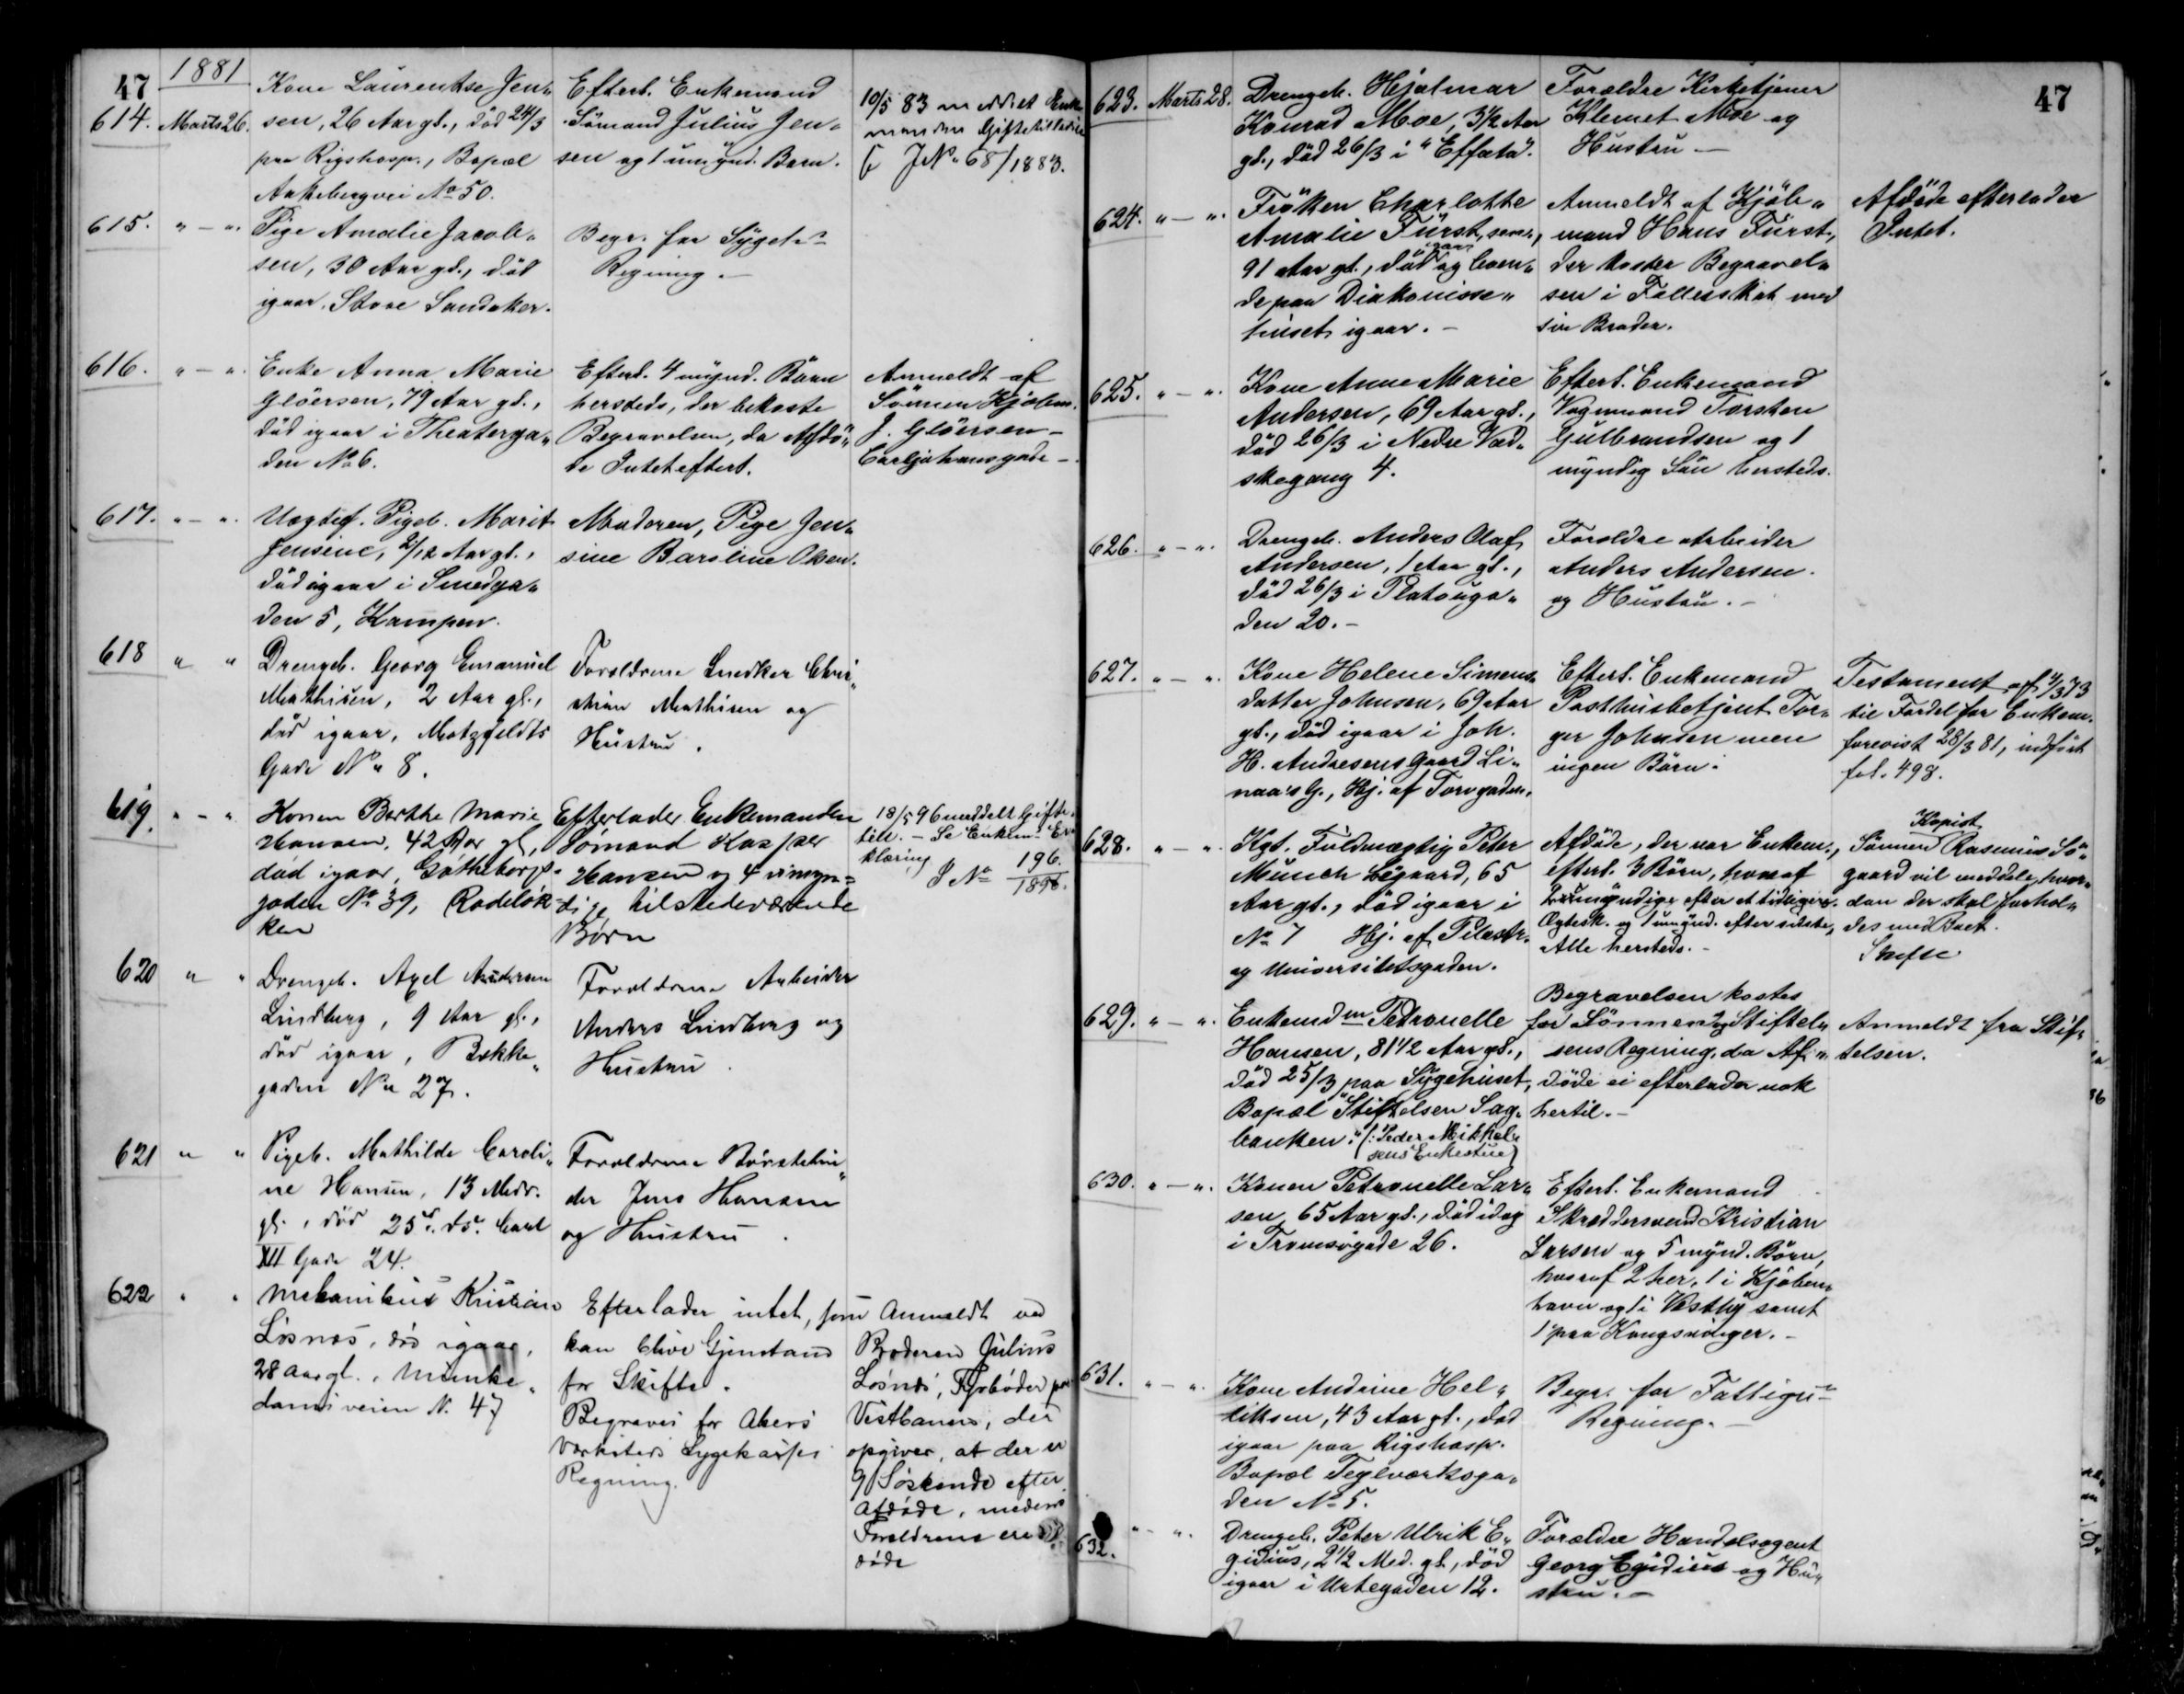 47
1881
614. Marts 26.
Kone Laurentse Jen„
sen, 26 Aar gl., död 24/3
paa Rigshosp., Bopæl
Akebergvei No 50.
Efterl. Enkemand
Sömand Julius Jen„
sen og 1 umynd. Barn.
10/5 83 meddelt Enke
manden Giftetilladelse
JN. 68/1883.
615. " — ".
Pige Amalie Jacob„
sen, 30 Aar gl., död
igaar. Store Sandaker.
Begr. for Sygeh.
Regning. —
616. " — ".
Enke Anna Marie
Glöersen, 79 Aar gl.,
död igaar i Theaterga„
den No 6.
Efterl. 4 mynd. Börn
hersteds, der bekoste
Begravelsen, da Afdö„
de Intet efterl.
Anmeldt af
Sönnen Kjöbm.
J. Glöersen —
Carljohansgade —
617. " — ".
Uægtef. Pigeb. Marit
Jensine, 2/12 Aar gl.,
död igaar i Smedga„
den 5, Kampen.
Moderen, Pige Jen„
sine Baroline Olsen.
618 " "
Drengeb. Georg Emanuel
Mathisen, 2 Aar gl.,
död igaar, Motzfeldts
Gade No 8.
Forældrene Snedker Chri„
stian Mathisen og
Hustru.
619. " - "
Konen Berthe Marie
Hansen, 42 Aar gl,
död igaar, Gøtheborg-
gaden No 39, Rodeløk-
ken
Efterlader Enkemanden
Sømand Kasper
Hansen og 4 umyn=
dige, tilstedeværende
Børn
18/5 96 meddelt Gifte
till. — Se Enkem. Er
klæring
J No 196/1896.
620 " "
Drengeb. Axel Andersen
Lindberg, 9 Aar gl.,
död igaar, Bakke„
gaden No 27.
Forældrene Arbeider
Anders Lindberg og
Hustru.
621 " "
Pigeb. Mathilde Caroli„
ne Hansen, 13 Mdr.
gl., död 25d. ds. Carl
XII Gade 24.
Forældrene Børstebin„
der Jens Hansen
og Hustru.
622 " "
Mekanikus Kristian
Løsnæs, død igaar,
28 Aar gl., Munke„
damsveien N. 47
Efterlader intet, som
kan blive Gjenstand
for Skifte.
Begraves for Akers
Værksteds Sygekasses
Regning.
Anmeldt ved
Broderen Julius
Løsnæs, Fyrbøder paa
Vestbanen, der
opgiver, at der er
9 Søskende efter
Afdøde, medens
Forældrene ere
døde
47
623. Marts 28.
Drengeb. Hjalmar
Konrad Moe, 3½ Aar
gl., död 26/3 i "Effata".
Forældre Kirketjener
Klemet Moe og
Hustru —
624. " — ".
Fröken Charlotte
Amalie Fürst, senr.,
91 Aar gl., död igaar og boen„
de paa Diakonisse„
huset igaar. —
Anmeldt af Kjöb„
mand Hans Fürst,
der koster Begravel„
sen i Fællesskab med
sin Broder.
Afdöde efterlader
Intet.
625. " — ".
Kone Anne Marie
Andersen, 69 Aar gl.,
död 26/3 i Nedre Vad„
skegang 4.
Efterl. Enkemand
Vognmand Torsten
Gulbrandsen og 1
myndig Sön hersteds.
626. " — ".
Drengeb. Anders Olaf
Andersen, 1 Aar gl.,
död 26/3 i Platouga„
den 20. —
Forældre Arbeider
Anders Andersen
og Hustru. —
627. " — ".
Kone Helene Simens„
datter Johnsen, 69 Aar
gl., död igaar i Joh.
H. Andresens Gaard Li„
naas G., Hj. af Torvgaden.
Efterl. Enkemand
Posthusbetjent Tor„
ger Johnsen men
ingen Börn.
Testament af 4/3 73
til Fordel for Enkem.
forevist 28/3 81, indfört
fol. 498.
628. " — ".
Kgl. Fuldmægtig Peter
Munch Søgaard, 65
Aar gl., död igaar i
No 7 Hj. af Pilestr.
og Universitetsgaden.
Afdöde, der var Enkem.,
efterl. 3 Börn, hvoraf
2 umyndige efter et tidligere
Ægtesk. og 1 umynd. efter sidste,
Alle hersteds. —
Kopist
Sönnen Rasmus Sö„
gaard vil meddele, hvor„
dan der skal forhol„
des med Boet.
Skifte
629. " — ".
Enkemdm Petronelle
Hansen, 81½ Aar gl.,
död 25/3 paa Sygehuset,
Bopæl "Stiftelsen Sag„
banken." (: Peder Mikkel„
sens Enkestue)
Begravelsen kostes
for Sönnen og Stiftel„
sens Regning, da Af„
döde ei efterlader nok
hertil. —
Anmeldt fra Stif„
telsen.
630. " — ".
Konen Petronelle Lar„
sen, 65 Aar gl., död idag
i Tromsögade 26.
Efterl. Enkemand
Skræddersvend Kristian
Larsen og 5 mynd. Börn,
hvoraf 2 her, 1 i Kjöben„
havn og 1 i Vestby samt
1 paa Kongsvinger. —
631. " — ".
Kone Andrine Hel„
liksen, 43 Aar gl., död
igaar paa Rigshosp.
Bopæl Teglværksga„
den No 5.
Begr. for Fattigv.
Regning. —
632. " - ".
Drengeb. Peter Ulrik E„
gidius, 2½ Md. gl., död
igaar i Urtegaden 12.
Forældre Handelsagent
Georg Egidius og Hu„
stru. —